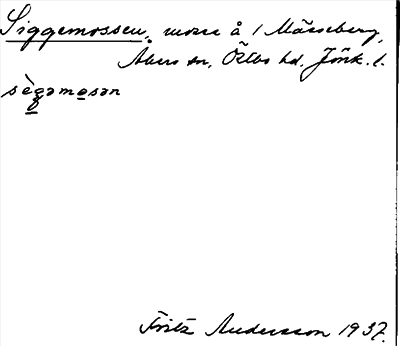 Siggemossen, mosse å 1 Mässeberg,
Åkers sn, Östbo hd, Jönk. l.
sègəmosən
Fritz Andersson 1937.